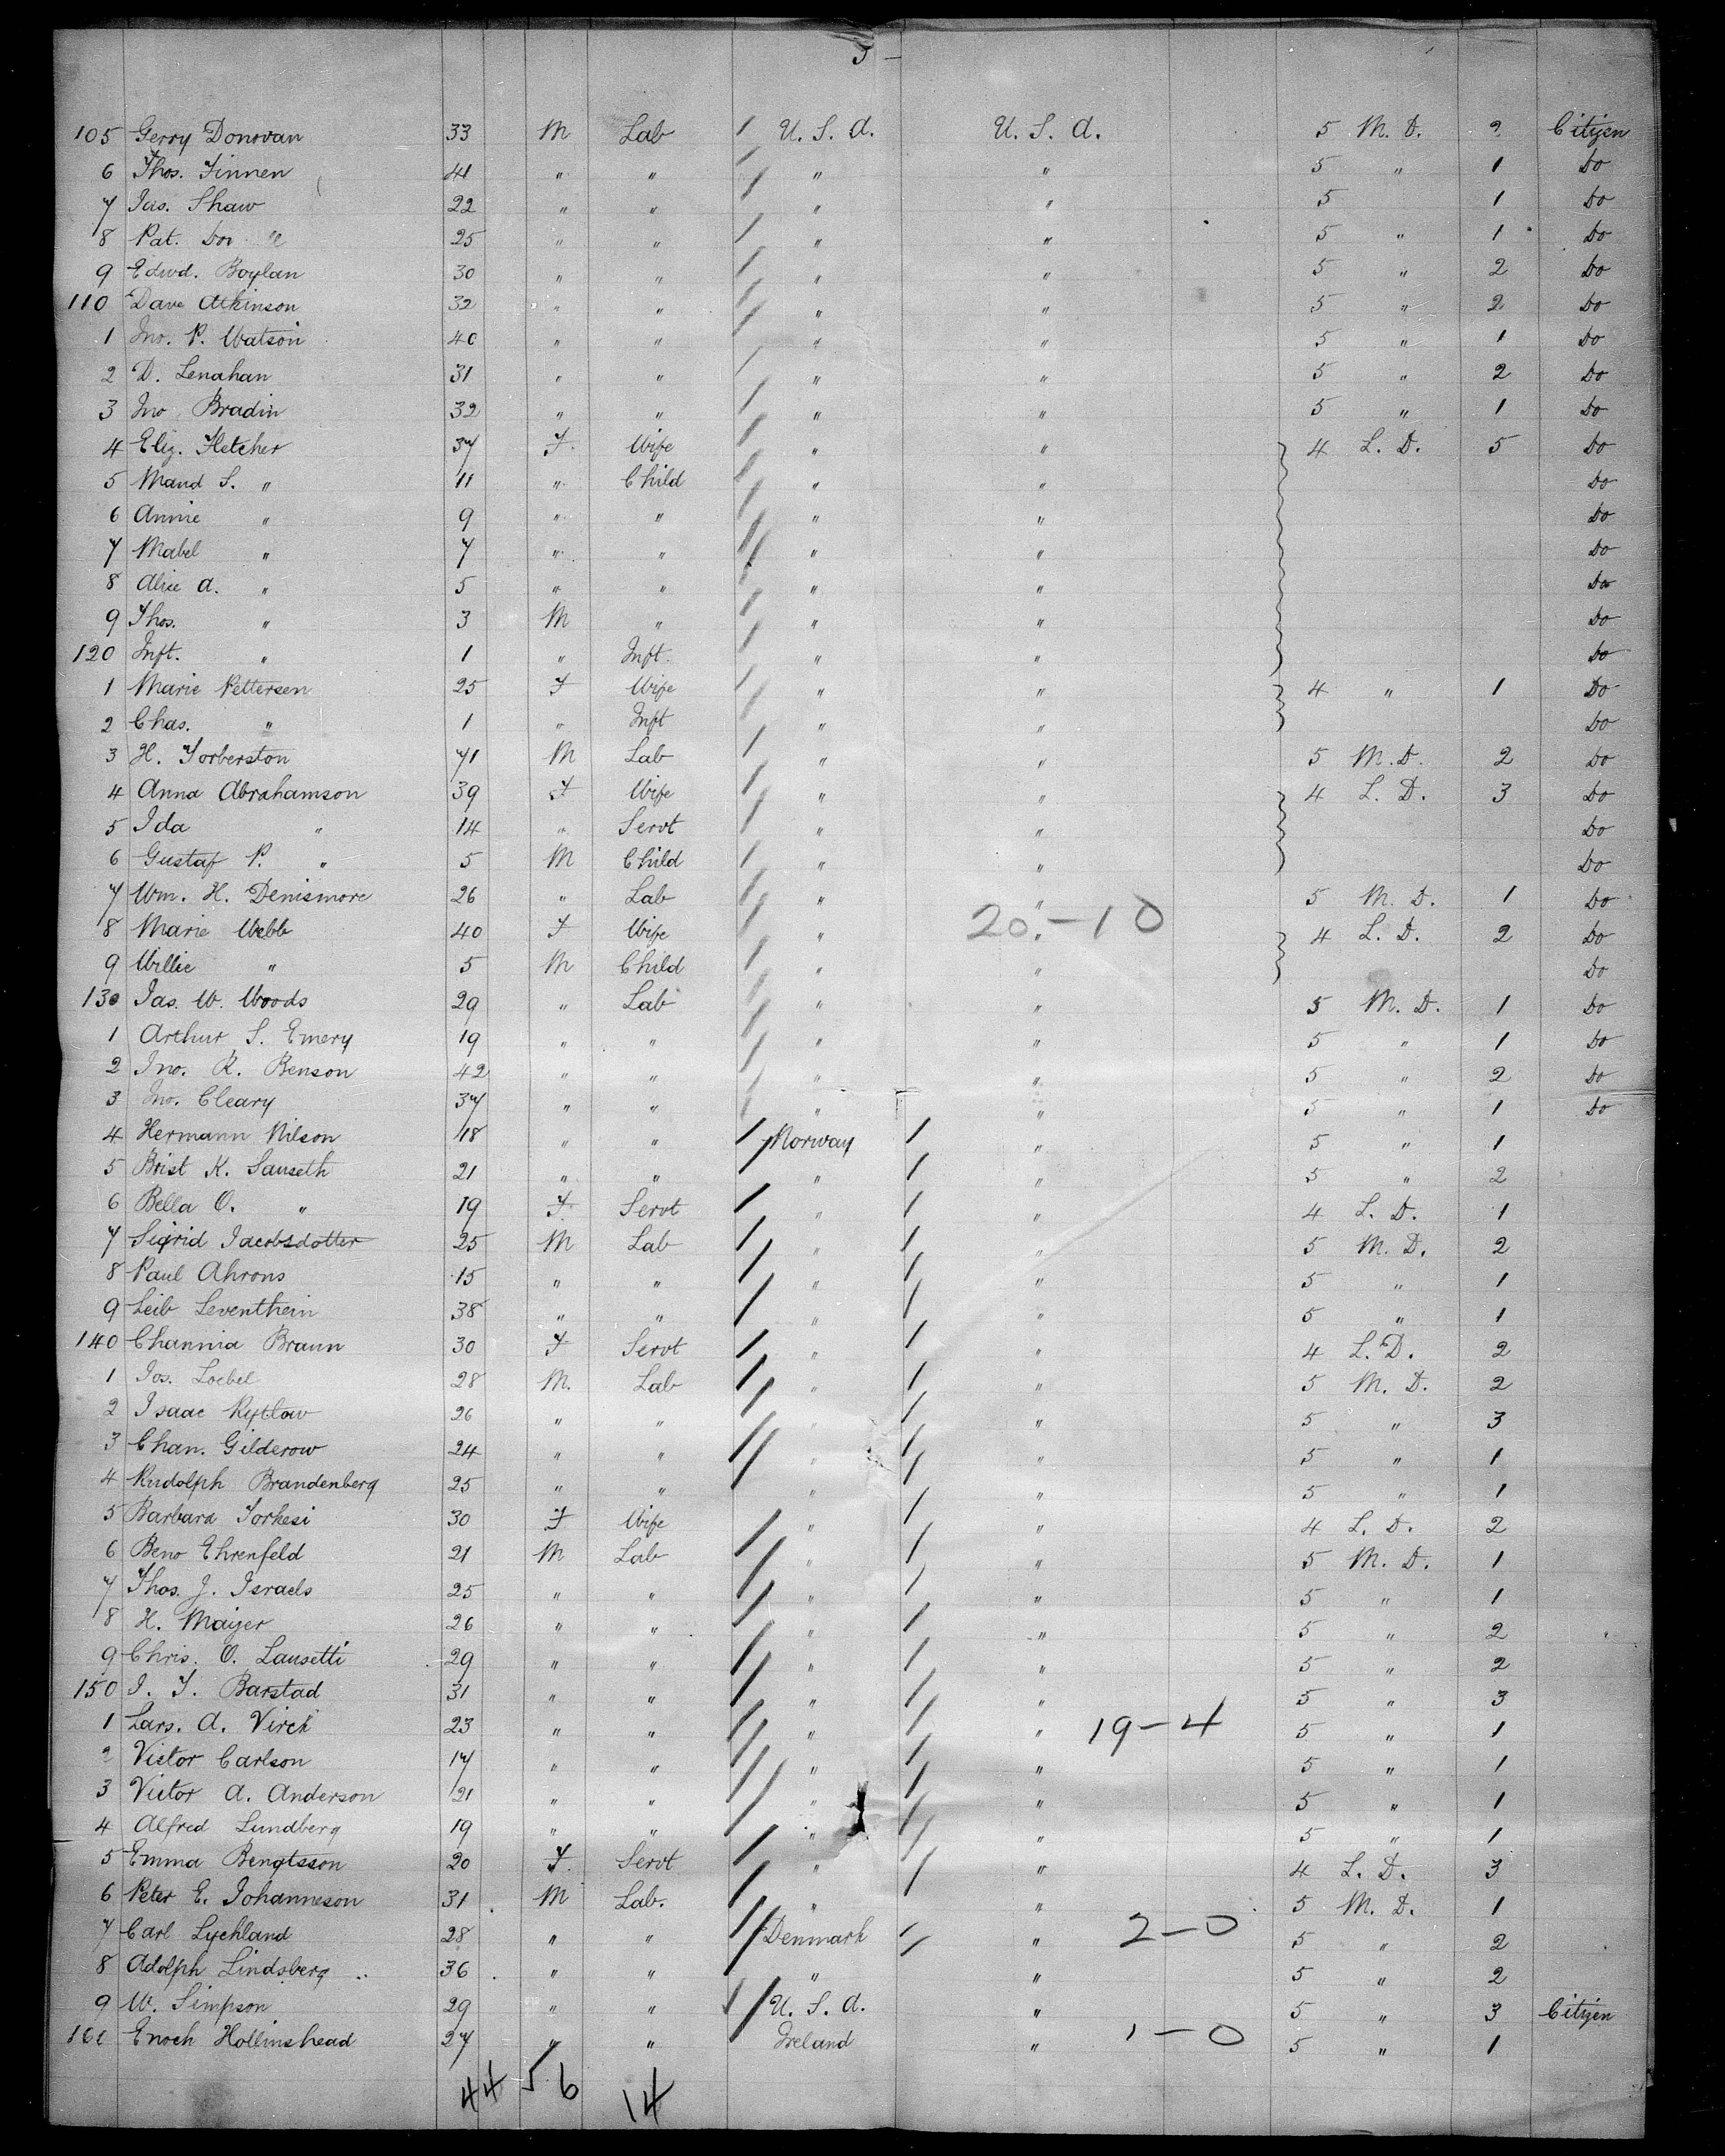 5 -
105 Gerry Donovan 33 M Lab / U. S. A. U. S. A. 5 M. D. 2 Citizen
6 Thos. Finnen 41 " " / " " 5 " 1 Do
7 Jas. Shaw 22 " " / " " 5 1 Do
8 Pat. 25 " " / " " 5 " 1 Do
9 Edwd. Boylan 30 " " / " " 5 " 2 Do
110 Dave Atkinson 32 " " / " " 5 " 2 Do
1 Jno. P. Watson 40 " " / " " 5 " 1 Do
2 D. Lenahan 31 " " / " " 5 " 2 Do
3 Jno Bradin 32 " " / " " 5 " 1 Do
4 Eliz. Fletcher 37 F. Wife / " " 4 L. D. 5 Do
5 Maud S. " 11 " Child / " " Do
6 Annie " 9 " " / " " Do
7 Mabel " 7 " " / " " Do
8 Alice A. " 5 " " / " " Do
9 Thos. " 3 M " / " " Do
120 Inft. " 1 " Inft. / " " Do
1 Marie Pettersen 25 F Wife / " " 4 " 1 Do
2 Chas. " 1 " Inft / " " Do
3 H. Torberston 71 M Lab / " " 5 M. D. 2 Do
4 Anna Abrahamson 39 F Wife / " " 4 L. D. 3 Do
5 Ida " 14 " Servt / " " Do
6 Gustaf P. " 5 M Child / " " Do
7 Wm. H. Denismore 26 " Lab / " " 5 M. D. 1 Do
8 Marie Webb 40 F Wife / " 20 - 10 " 4 L. D. 2 Do
9 Willie " 5 M Child / " " Do
130 Jas. W. Woods 29 " Lab / " " 5 M. D. 1 Do
1 Arthur S. Emery 19 " " / " " 5 " 1 Do
2 Jno. R. Benson 42 " " / " " 5 " 2 Do
3 Jno. Cleary 37 " " / " " 5 " 1 Do
4 Hermann Nilson 18 " " / Norway / " 5 " 1
5 Brist K. Sauseth 21 " " / " / " 5 " 2
6 Bella O. " 19 F Servt / " / " 4 L. D. 1
7 Sigrid Jacobsdotter 25 M Lab / " / " 5 M. D. 2
8 Paul Ahrons 15 " " / " / " 5 " 1
9 Leib Leventhein 38 " " / " / " 5 " 1
140 Channia Braun 30 F Servt / " / " 4 L. D. 2
1 Jos. Loebel 28 M. Lab / " / " 5 M. D. 2
2 Isaac Rytlow 26 " " / " / " 5 " 3
3 Chan. Gilderow 24 " " / " / " 5 " 1
4 Rudolph Brandenberg 25 " " / " / " 5 " 1
5 Barbara Torkesi 30 F Wife / " / " 4 L. D. 2
6 Beno Ehrenfeld 21 M Lab / " / " 5 M. D. 1
7 Thos. J. Israels 25 " " / " / " 5 " 1
8 H. Maijer 26 " " / " / " 5 " 2
9 Chris. O. Lausetti 29 " " / " / " 5 " 2
150 I. T. Barstad 31 " " / " / " 5 " 3
1 Lars. A. Virck 23 " " / " / " 19 - 4 5 " 1
2 Victor Carlson 17 " " / " / " 5 " 1
3 Victor A. Anderson 21 " " / " / " 5 " 1
4 Alfred Lundberg 19 " " / " / " 5 " 1
5 Emma Bengtsson 20 F. Servt / " / " 4 L. D. 3
6 Peter E. Johanneson 31 M Lab. / " " 5 M. D. 1
7 Carl Lychland 28 " " / Denmark / " 2 - 0 5 " 2
8 Adolph Lindsberg 36 " " / " / " 5 " 2
9 W. Simpson 29 " " / U. S. A. " 5 " 3 Citizen
160 Enoch Hollinshead 27 " " Ireland " 1 - 0 5 " 1
44 56 14